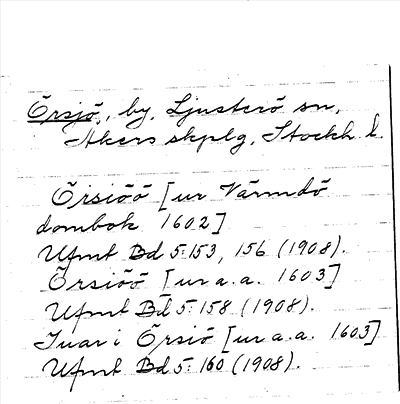 Örsjö, by, Ljusterö sn,
Åkers skplg, Stockh. l.
Örsiöö [ur Värmdö
dombok 1602]
Ufmt Bd 5:153, 156 (1908).
Örsiöö [ur a.a. 1603]
Ufmt Bd 5:158 (1908).
Iuar i Örsiö [ur a.a. 1603]
Ufmt Bd 5:160 (1908).